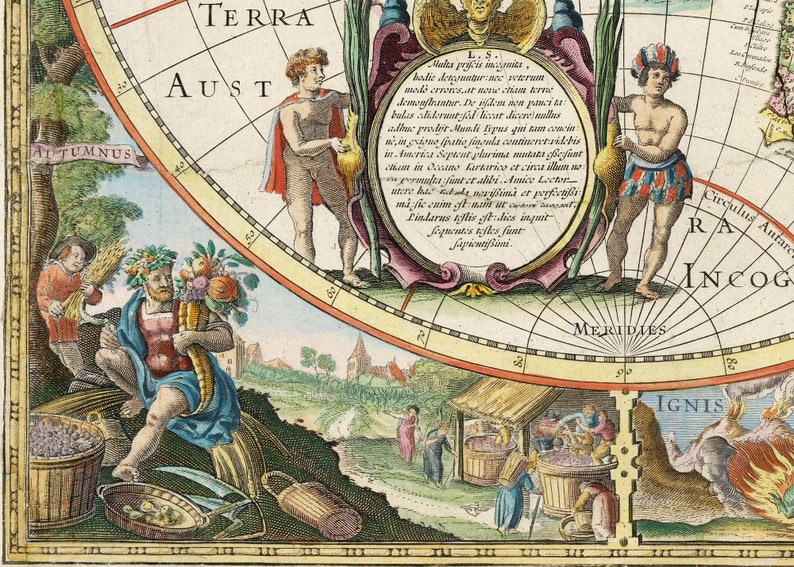 TERRA
AUST
L. S.
Multa priscis incognita,
hodie deteguntur: nec veterum
modò errores, at novæ etiam terræ
demonstrantur. De iisdem non pauci ta:
bulas ediderunt: sed liceat dicere, nullus
adhuc prodijt Mundi Typus qui tam concin:
nè, in exiguo spatio, singula contineret: videbis
in America Septent. plurima mutata esse: sunt
etiam in Oceano Tartarico et circa illum no:
va permulta: sunt et alibi. Amice Lector
utere hac tabula novißima et perfectißi
ma: sic enim est: nam ut
Pindarus testis est: dies inquit
sequentes testes sunt
sapientissimi.
AUTUMNUS
Circulus Antarc
RA
INCOG
MERIDIES
IGNIS
50
60
70
80
90
80
Los Coronados